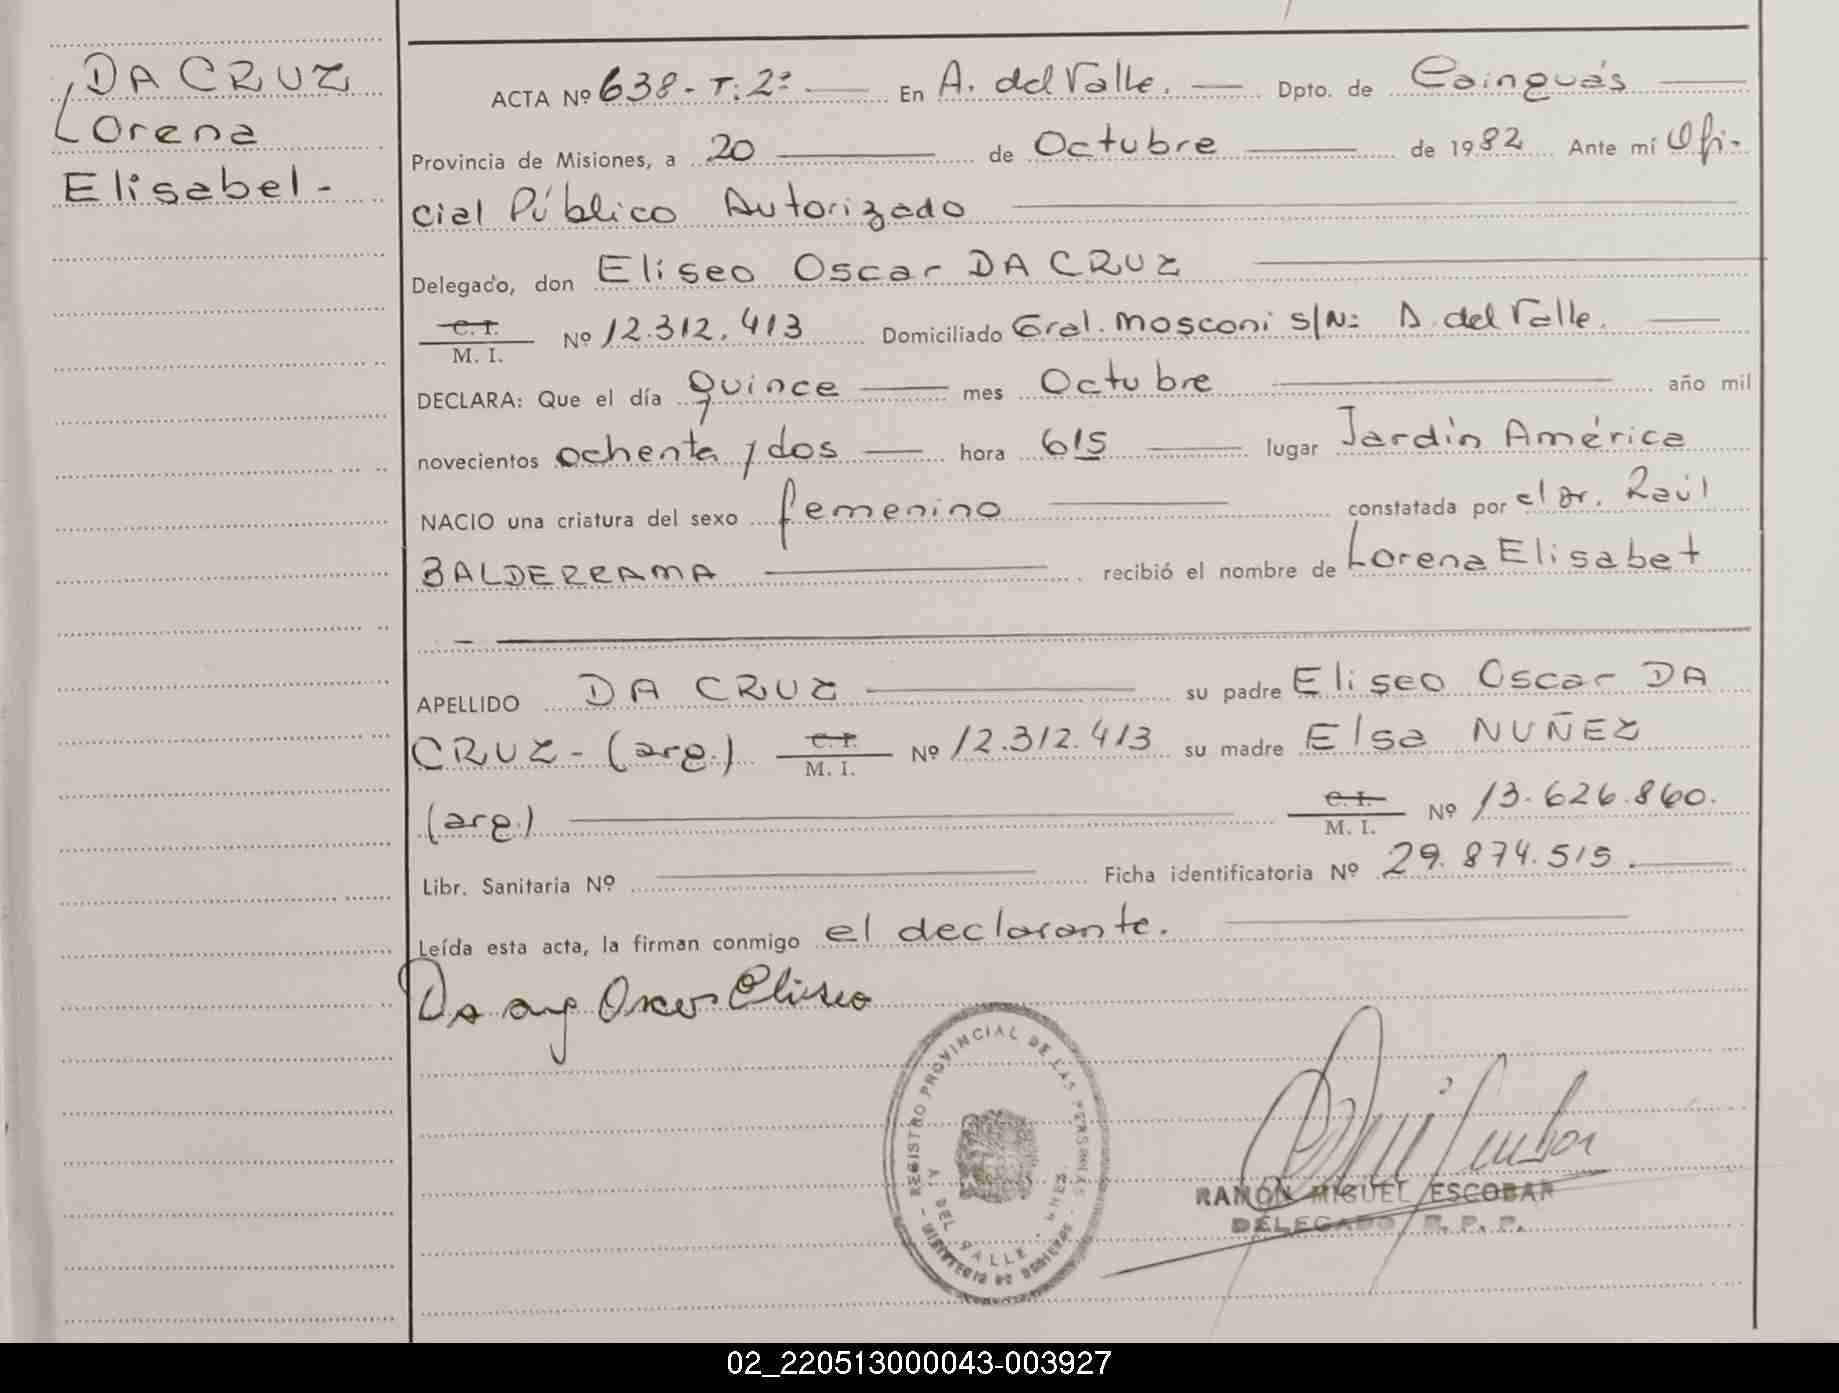 DA CRUZ
Lorena
Elisabel -
ACTA Nº 638 - T: 2º - En A. del Valle. Dpto. de Cainguás
Provincia de Misiones, a 20 de Octubre de 1982 Ante mí Ofi-
cial Público Autorizado
Delegado, don Eliseo Oscar DA CRUZ
C. I.
M. I. Nº 12.312.413 Domiciliado Gral. Mosconi s/Nº A. del Valle.
DECLARA: Que el día quince mes Octubre año mil
novecientos ochenta y dos hora 615 lugar Jardín América
NACIO una criatura del sexo femenino constatada por el Dr. Raúl
BALDERRAMA recibió el nombre de Lorena Elisabet
APELLIDO DA CRUZ su padre Eliseo Oscar DA
CRUZ - (arg.) C. I. M. I. Nº 12.312.413 su madre Elsa NUÑEZ
(arg.) C. I. M. I. Nº 13.626.860.
Libr. Sanitaria Nº Ficha identificatoria Nº 29.874.515.
Leída esta acta, la firman conmigo el declarante.
Oscar Eliseo
REGISTRO PROVINCIAL DE LAS PERSONAS
A. DEL VALLE - MNES.
- MINISTERIO DE GOBIERNO -
RAMÓN MIGUEL ESCOBAR
DELEGADO R. P. P.
02_220513000043-003927